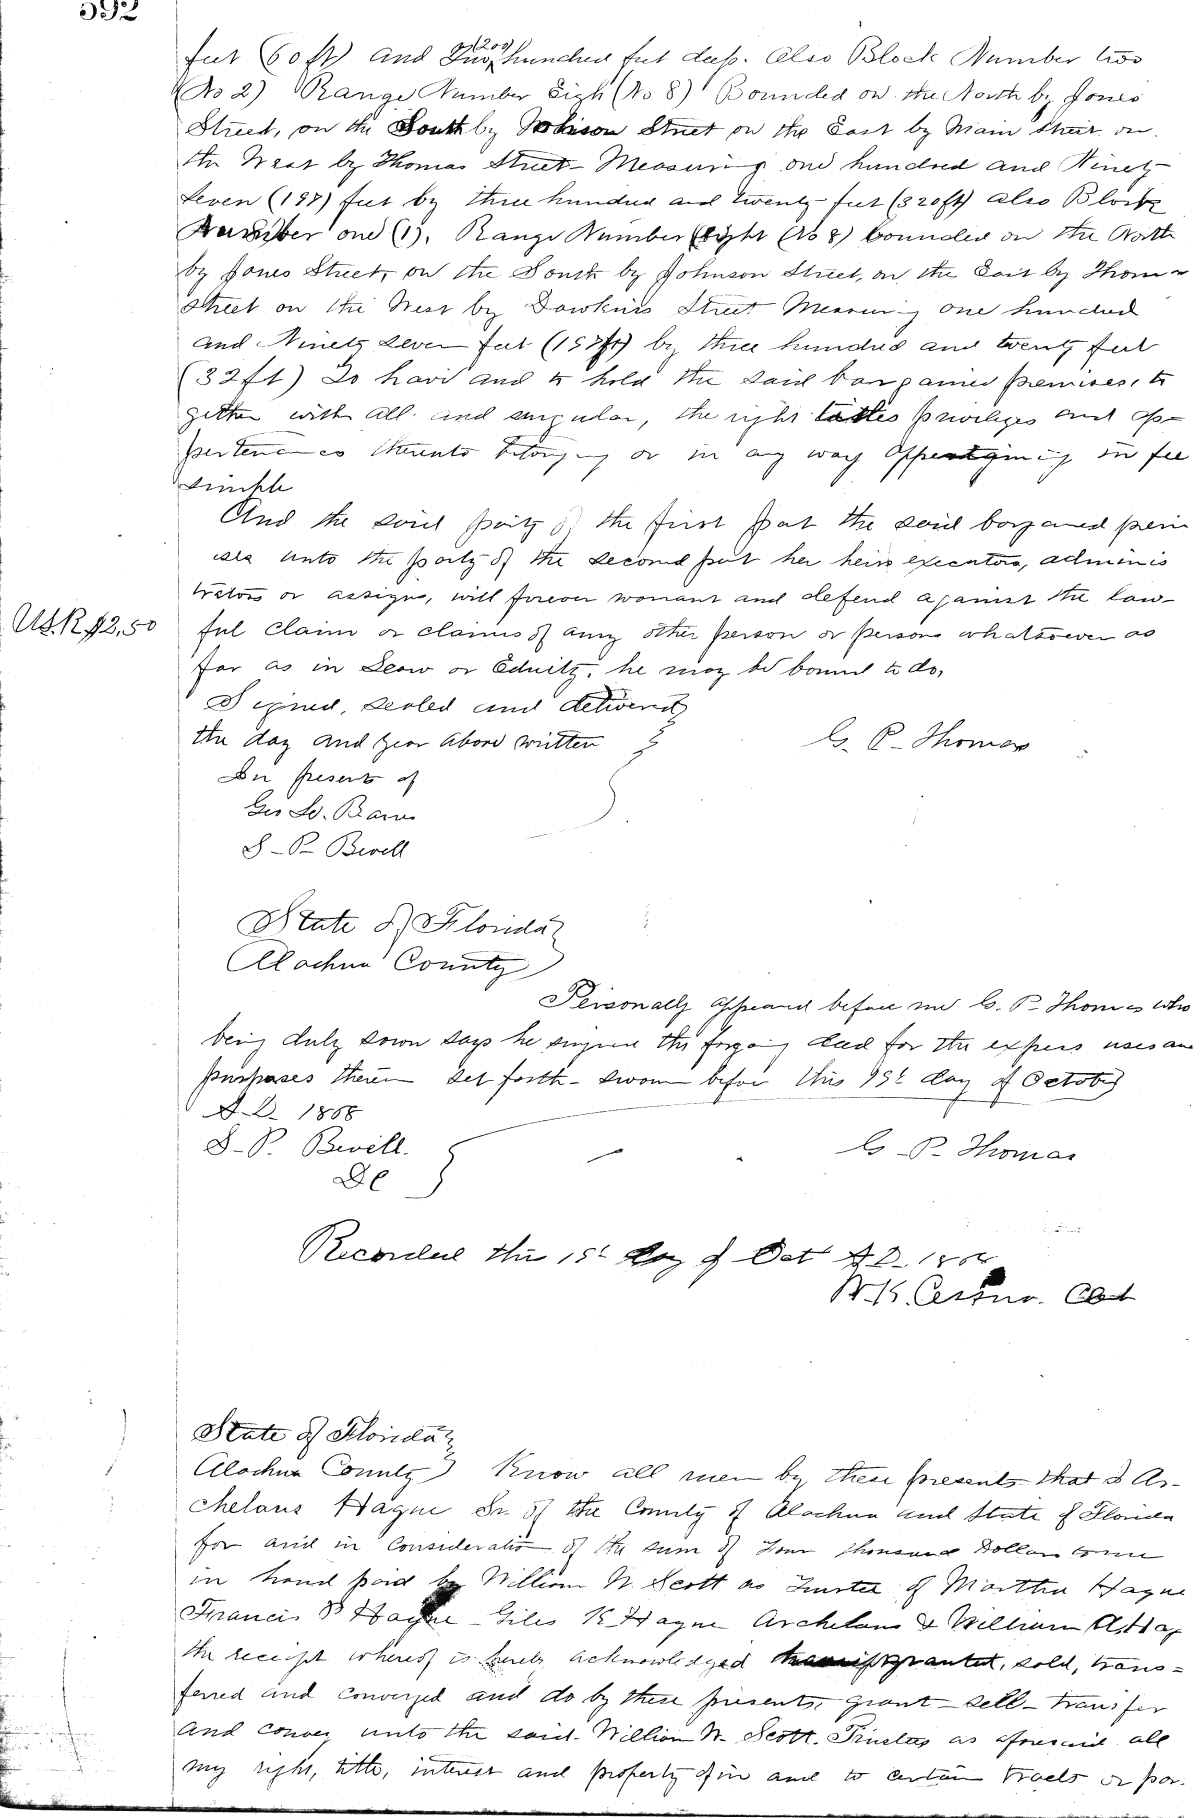 592
feet (60 ft) and Two (200) hundred feet deep. Also Block Number two
(No 2) Range Number Eigh (No 8) Bounded on the North by Jones
Street, on the South by Johison Street on the East by Main Street on
the West by Thomas Street Measuring one hundred and Ninety
seven (197) feet by three hundred and twenty feet (320ft) also Block
Number one (1), Range Number Eight (No 8) bounded on the North
by Jones Street, on the South by Johnson Street, on the East by Thomas
street on the West by Dawkins Street Measuring one hundred
and Ninety seven feet (197ft) by three hundred and twenty feet
(32ft) To have and to hold the said bargained premises, to
gether with all and singular, the right titles privileges and ap=
pertenances thereto belonging or in any way appertaining in fee
simple
And the said party of the first part the said bargained prem
ises unto the party of the second part her heirs executors, adminis
trators or assigns, will forever warrant and defend against the law-
ful claim or claims of any other person or persons whatsoever as
U.S.R. $2.50
far as in Law or Equity, he may be bound to do,
Signed, sealed and delivered
the day and year above written
G. P. Thomas
In presents of
Geo W. Barns
S. P. Bevell
State of Florida
Alachua County
Personally appeared before me G. P. Thomas who
being duly sworn says he signed the forgoing deed for the express uses and
purposes therein set forth - sworn before this 19t day of October
A.D. 1868
S. P. Bevill.
DC
G. P. Thomas
Recorded this 19t day of Oct A.D. 1868
W. K. Cessna. Clk
State of Florida
Alachua County Know all men by these presents that I Ar-
chelaus Hague Sr. of the County of Alachua and State of Florida
for and in consideration of the sum of Four thousand Dollars to me
in hand paid by William W. Scott as Trustee of Martha Hague
Francis P Hague Giles K Hague Archelaus & William A. Hag
the receipt whereof is hereby acknowledged granted, sold, trans=
ferred and conveyed and do by these presents, grant - sell - transfer
and convey unto the said William W. Scott. Trustee as aforesaid all
my right, title, interest and property of in and to certain tracts or par-